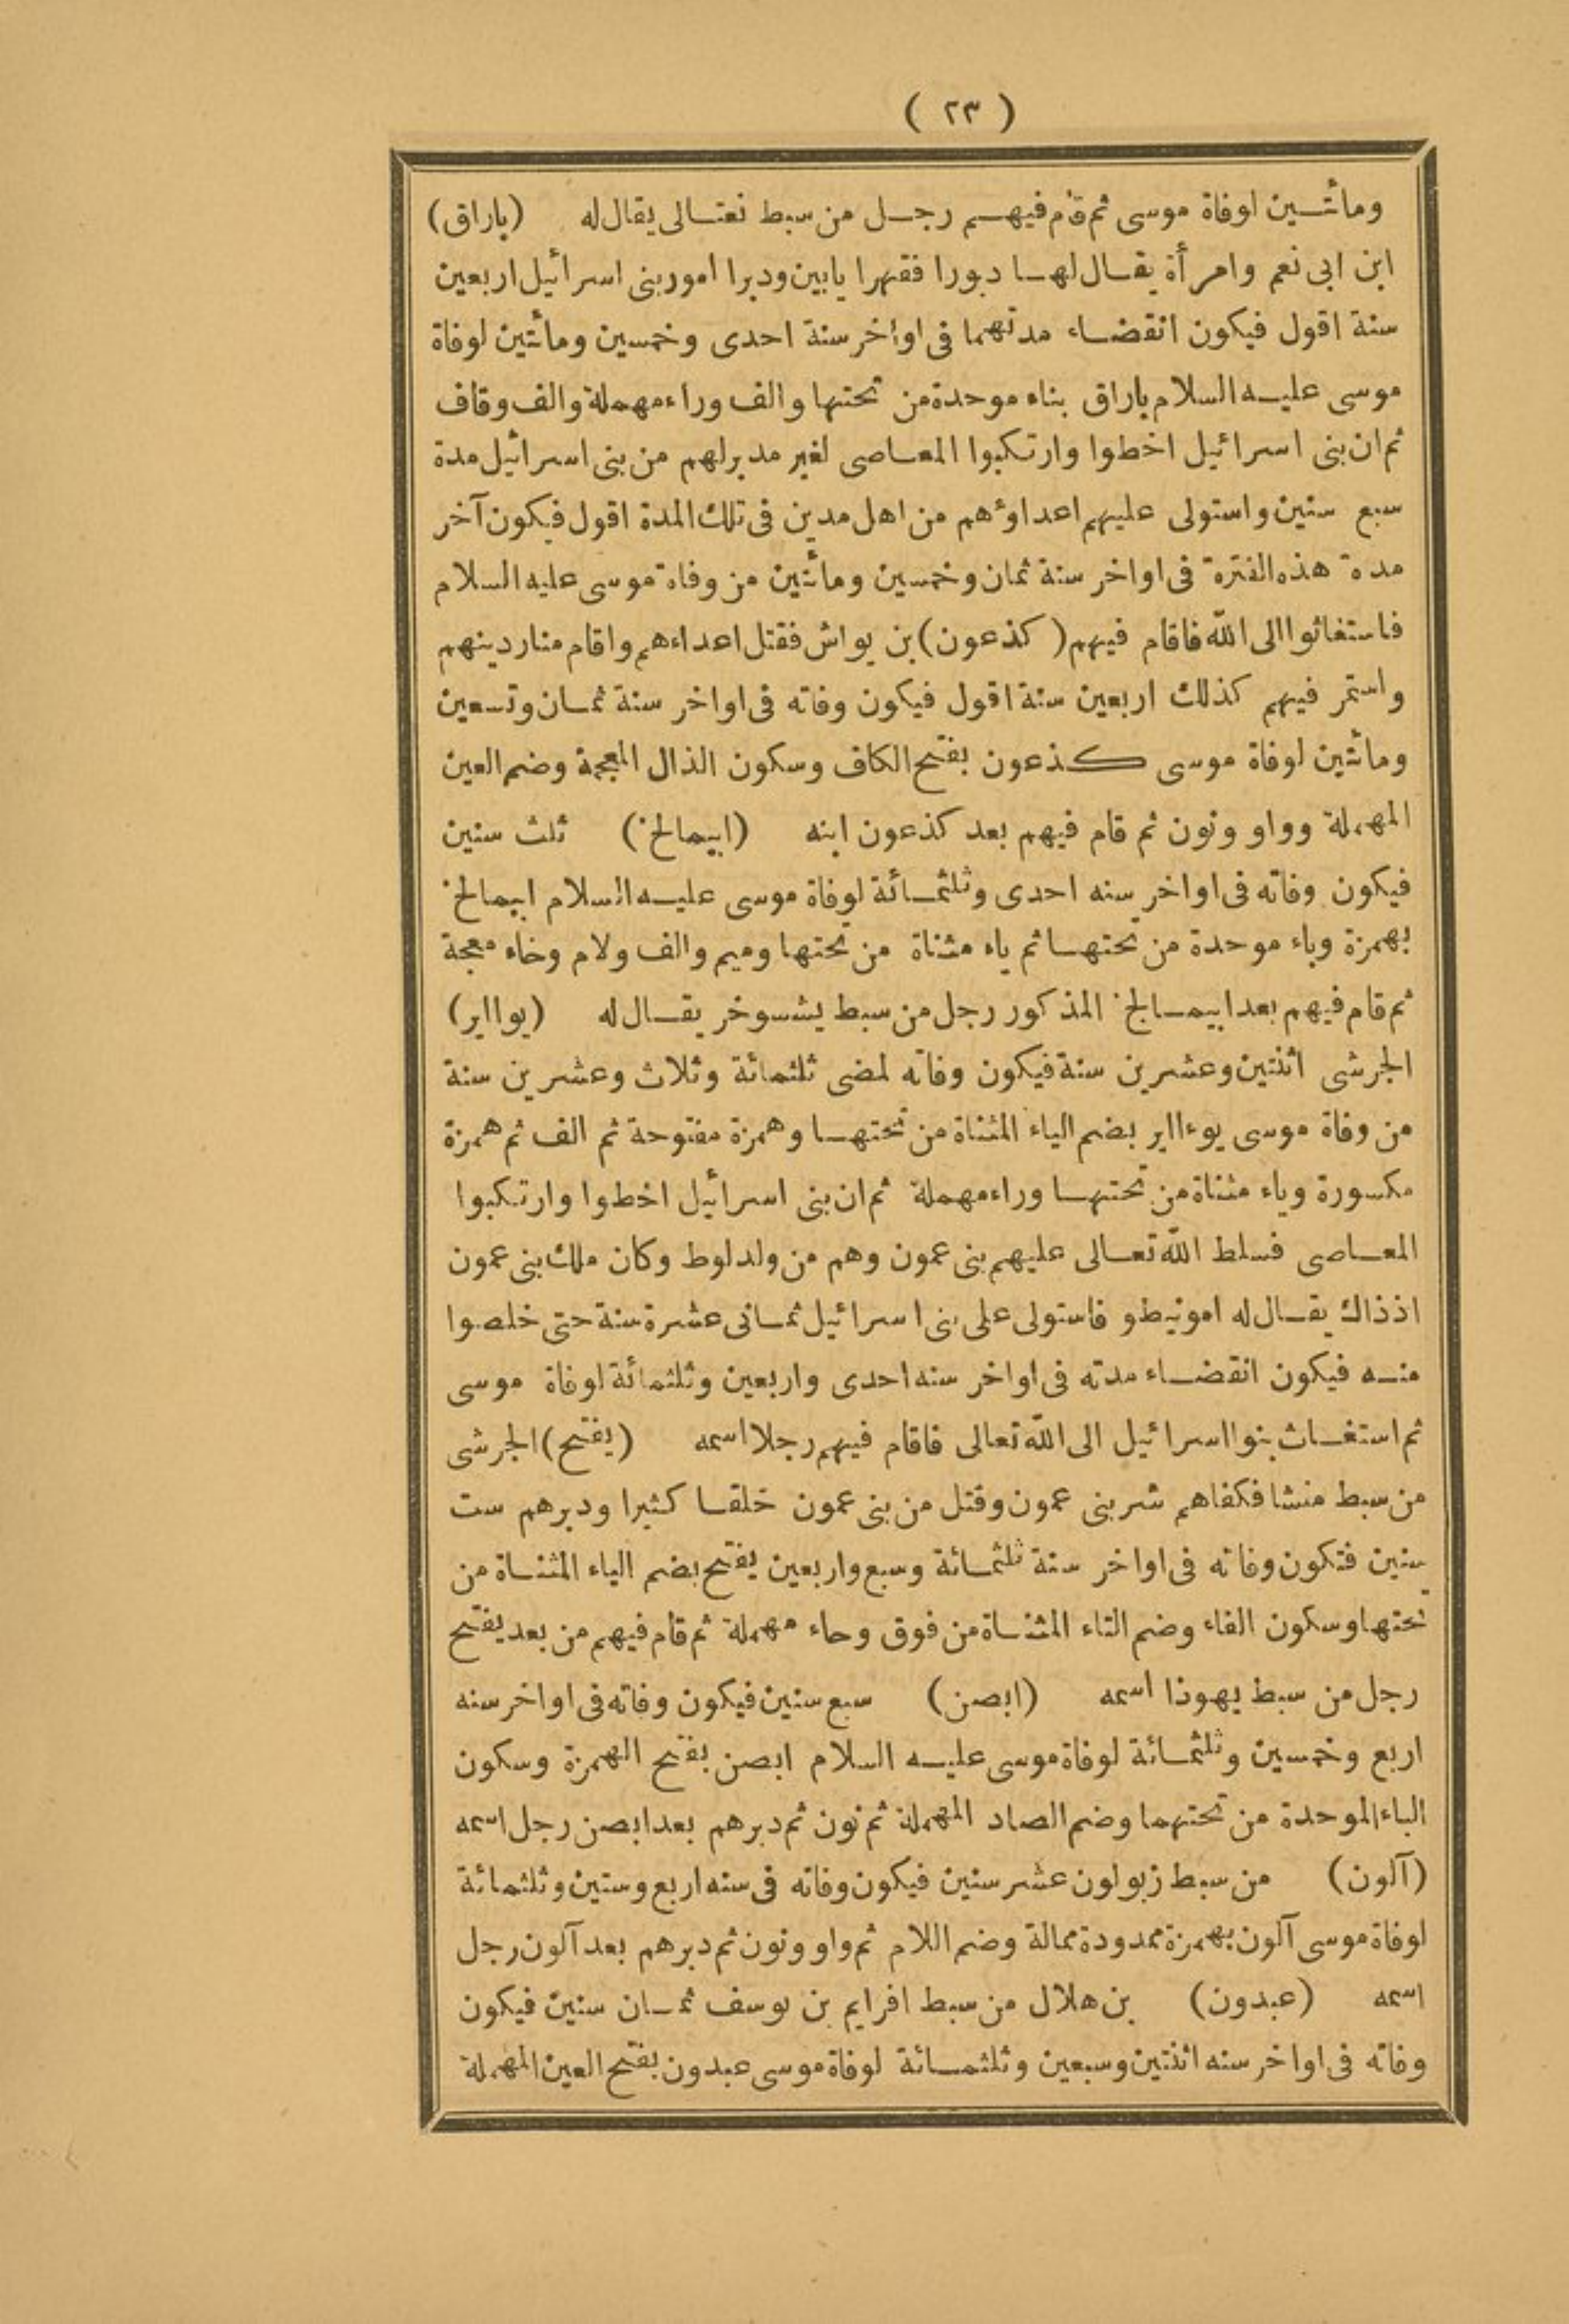 ( ٢٣ )
ومأتـين لوفاة موسى ثم قام فيهم رجل من سبط نفتالى يقال له (باراق)
ابن ابى نعم وامرأة يقال لها دبورا فقهرا يابين ودبرا امور بنى اسرائيل اربعين
سنة اقول فيكون انقضاء مدتهما فى اواخر سنة احدى وخمسين ومأتين لوفاة
موسى عليه السلام باراق بباء موحدة من تحتها والف وراء مهملة والف وقاف
ثم ان بنى اسرائيل اخطوا وارتكبوا المعاصى لغير مدبر لهم من بنى اسرائيل مدة
سبع سنين واستولى عليهم اعداؤهم من اهل مدين فى تلك المدة اقول فيكون آخر
مدة هذه الفترة فى اواخر سنة ثمان وخمسين ومأتين من وفاة موسى عليه السلام
فاستغاثوا الى الله فاقام فيهم (كذعون) بن يواش فقتل اعداءهم واقام منار دينهم
واستمر فيهم كذلك اربعين سنة اقول فيكون وفاته فى اواخر سنة ثمان وتسعين
ومأتين لوفاة موسى كذعون بفتح الكاف وسكون الذال المعجمة وضم العين
المهملة وواو ونون ثم قام فيهم بعد كذعون ابنه (ابيمالخ) ثلث سنين
فيكون وفاته فى اواخر سنه احدى وثلثمائة لوفاة موسى عليه السلام ابيمالخ
بهمزة وباء موحدة من تحتها ثم ياء مثناة من تحتها وميم والف ولام وخاء معجمة
ثم قام فيهم بعد ابيمالخ المذكور رجل من سبط يشسوخر يقال له (يوااير)
الجرشى اثنتين وعشرين سنة فيكون وفاته لمضى ثلثمائة وثلاث وعشرين سنة
من وفاة موسى يوءااير بضم الياء المثناة من تحتها وهمزة مفتوحة ثم الف ثم همزة
مكسورة وياء مثناة من تحتها وراء مهملة ثم ان بنى اسرائيل اخطوا وارتكبوا
المعاصى فسلط الله تعالى عليهم بنى عمون وهم من ولد لوط وكان ملك بنى عمون
اذ ذاك يقال له امونيطو فاستولى على بنى اسرائيل ثمانى عشرة سنة حتى خلصوا
منه فيكون انقضاء مدته فى اواخر سنه احدى واربعين وثلثمائة لوفاة موسى
ثم استغاث بنوا اسرائيل الى الله تعالى فاقام فيهم رجلا اسمه (يفتح) الجرشى
من سبط منشا فكفاهم شر بنى عمون وقتل من بنى عمون خلقا كثيرا ودبرهم ست
سنين فتكون وفاته فى اواخر سنة ثلثمائة وسبع واربعين يفتح بضم الياء المثناة من
تحتها وسكون الفاء وضم التاء المثناة من فوق وحاء مهملة ثم قام فيهم من بعد يفتح
رجل من سبط يهوذا اسمه (ابصن) سبع سنين فيكون وفاته فى اواخر سنه
اربع وخمسين وثلثمائة لوفاة موسى عليه السلام ابصن بفتح الهمزة وسكون
الباء الموحدة من تحتهما وضم الصاد المهملة ثم نون ثم دبرهم بعد ابصن رجل اسمه
(آلون) من سبط زبولون عشر سنين فيكون وفاته فى سنه اربع وستين وثلثمائة
لوفاة موسى آلون بهمزة ممدودة ممالة وضم اللام ثم واو ونون ثم دبرهم بعد آلون رجل
اسمه (عبدون) بن هلال من سبط افرايم بن يوسف ثمان سنين فيكون
وفاته فى اواخر سنه اثنتين وسبعين وثلثمائة لوفاة موسى عبدون بفتح العين المهملة